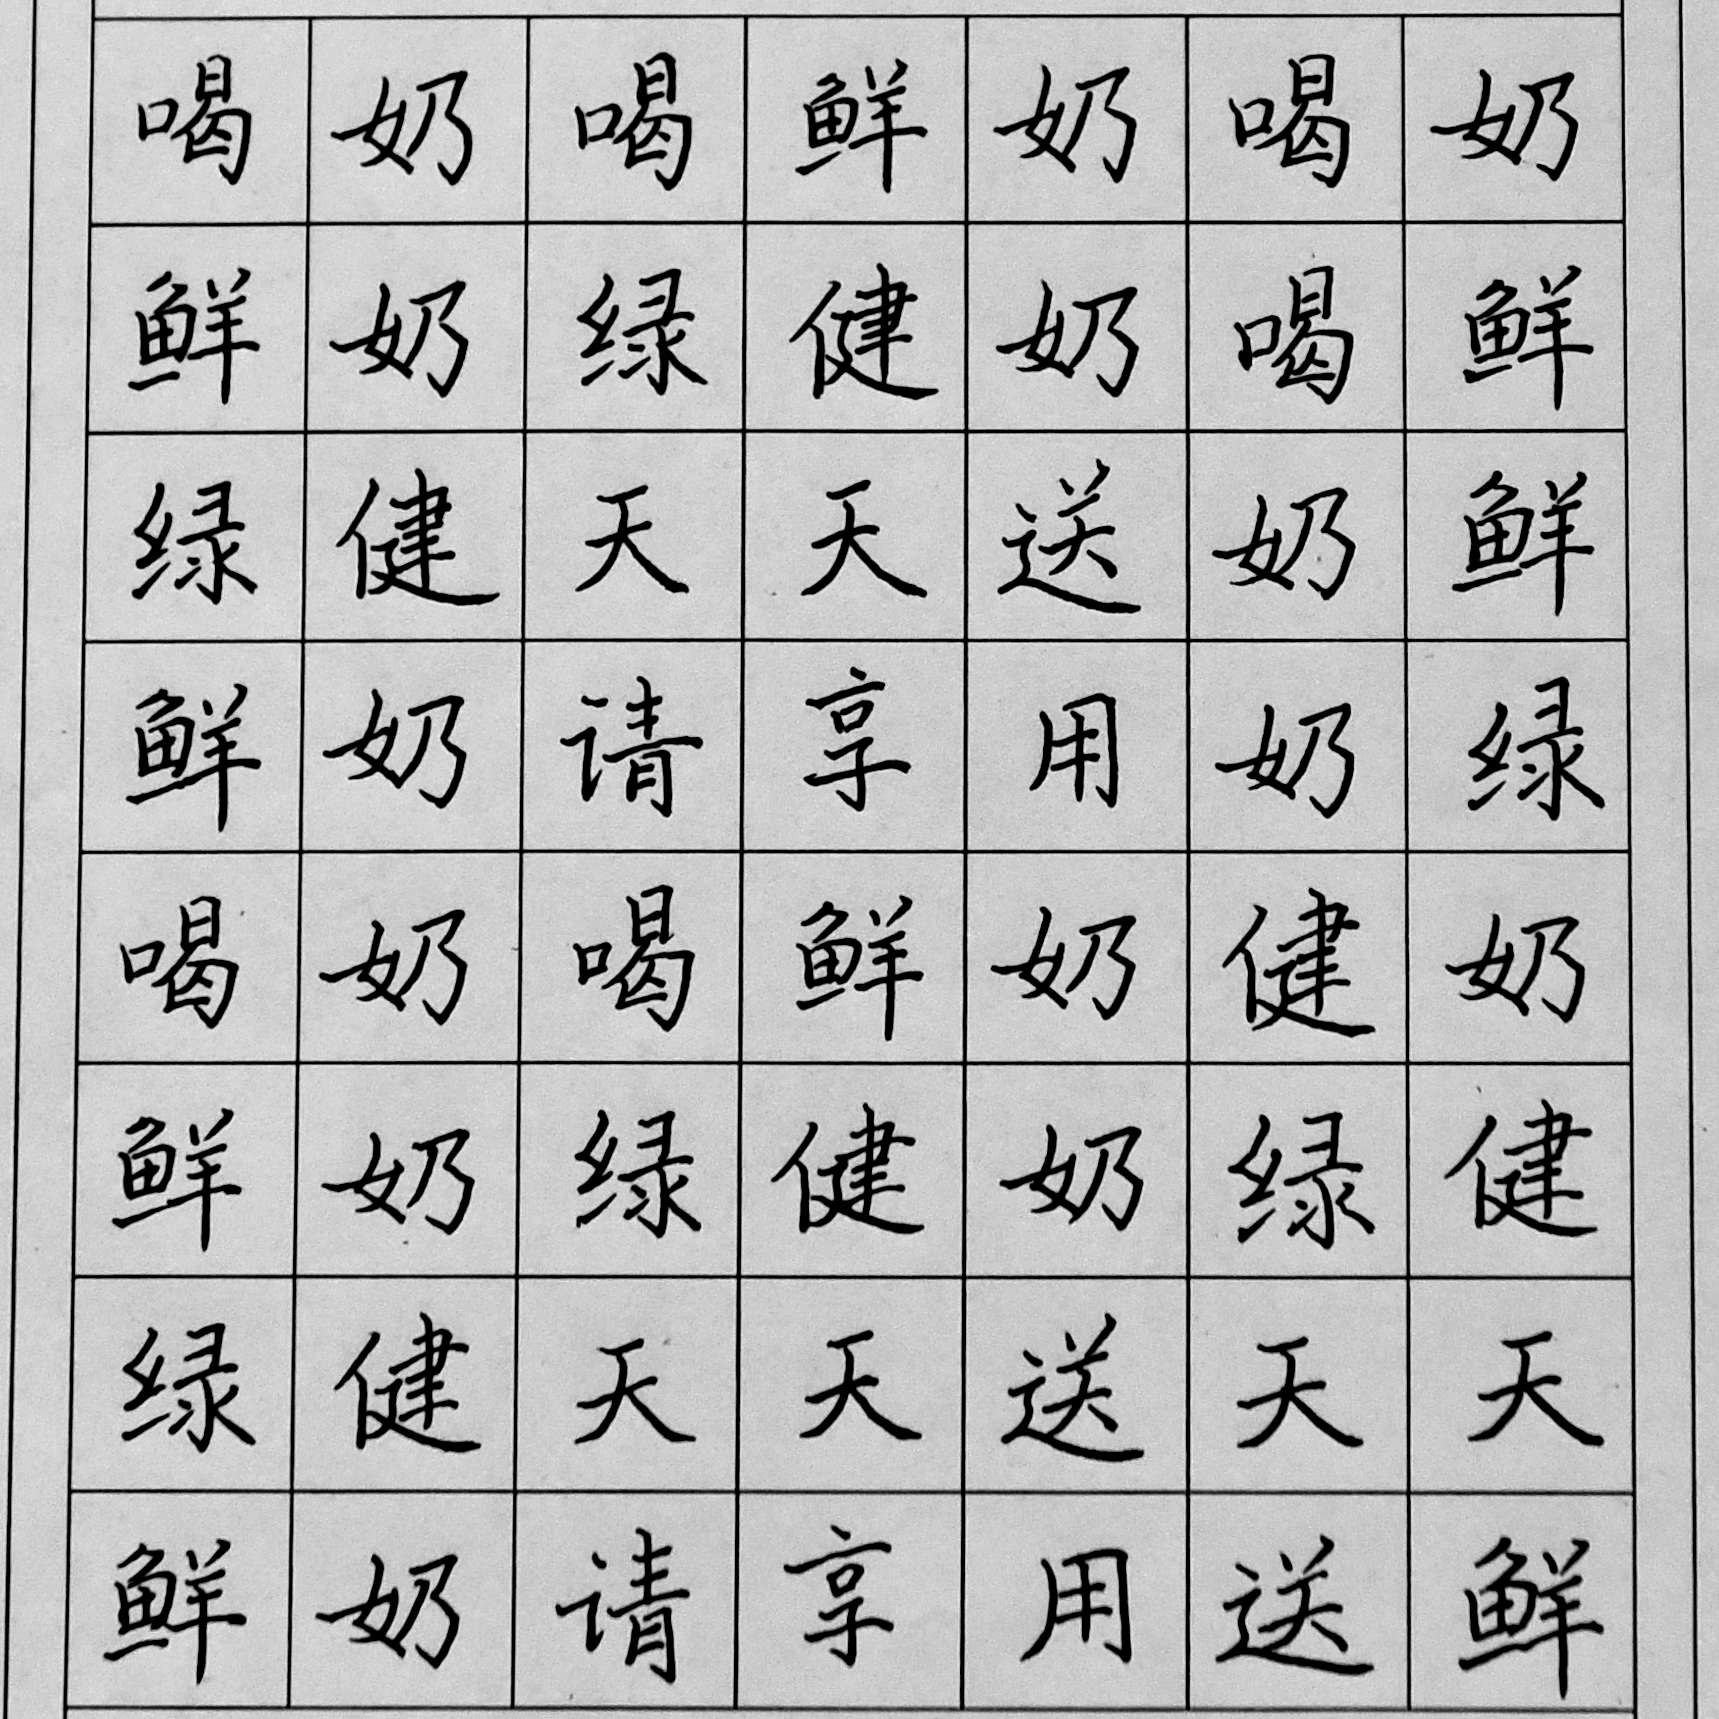 喝奶喝鲜奶喝奶
鲜奶绿健奶喝鲜
绿健天天送奶鲜
鲜奶请享用奶绿
喝奶喝鲜奶健奶
鲜奶绿健奶绿健
绿健天天送天天
鲜奶请享用送鲜